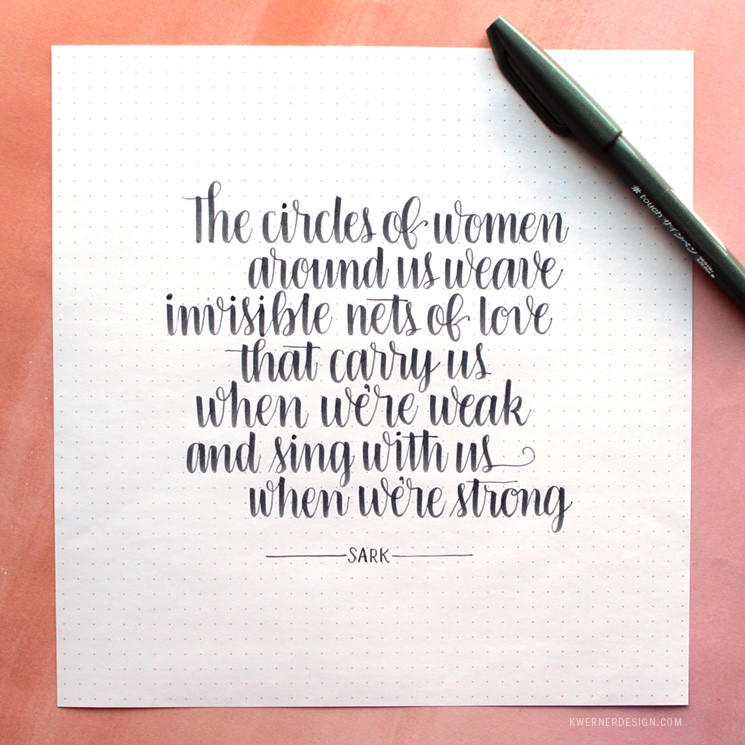 The circles of women
around us weave
invisible nets of love
that carry us
when we're weak
and sing with us
when we're strong
SARK
touch サインペン
KWERNERDESIGN.COM